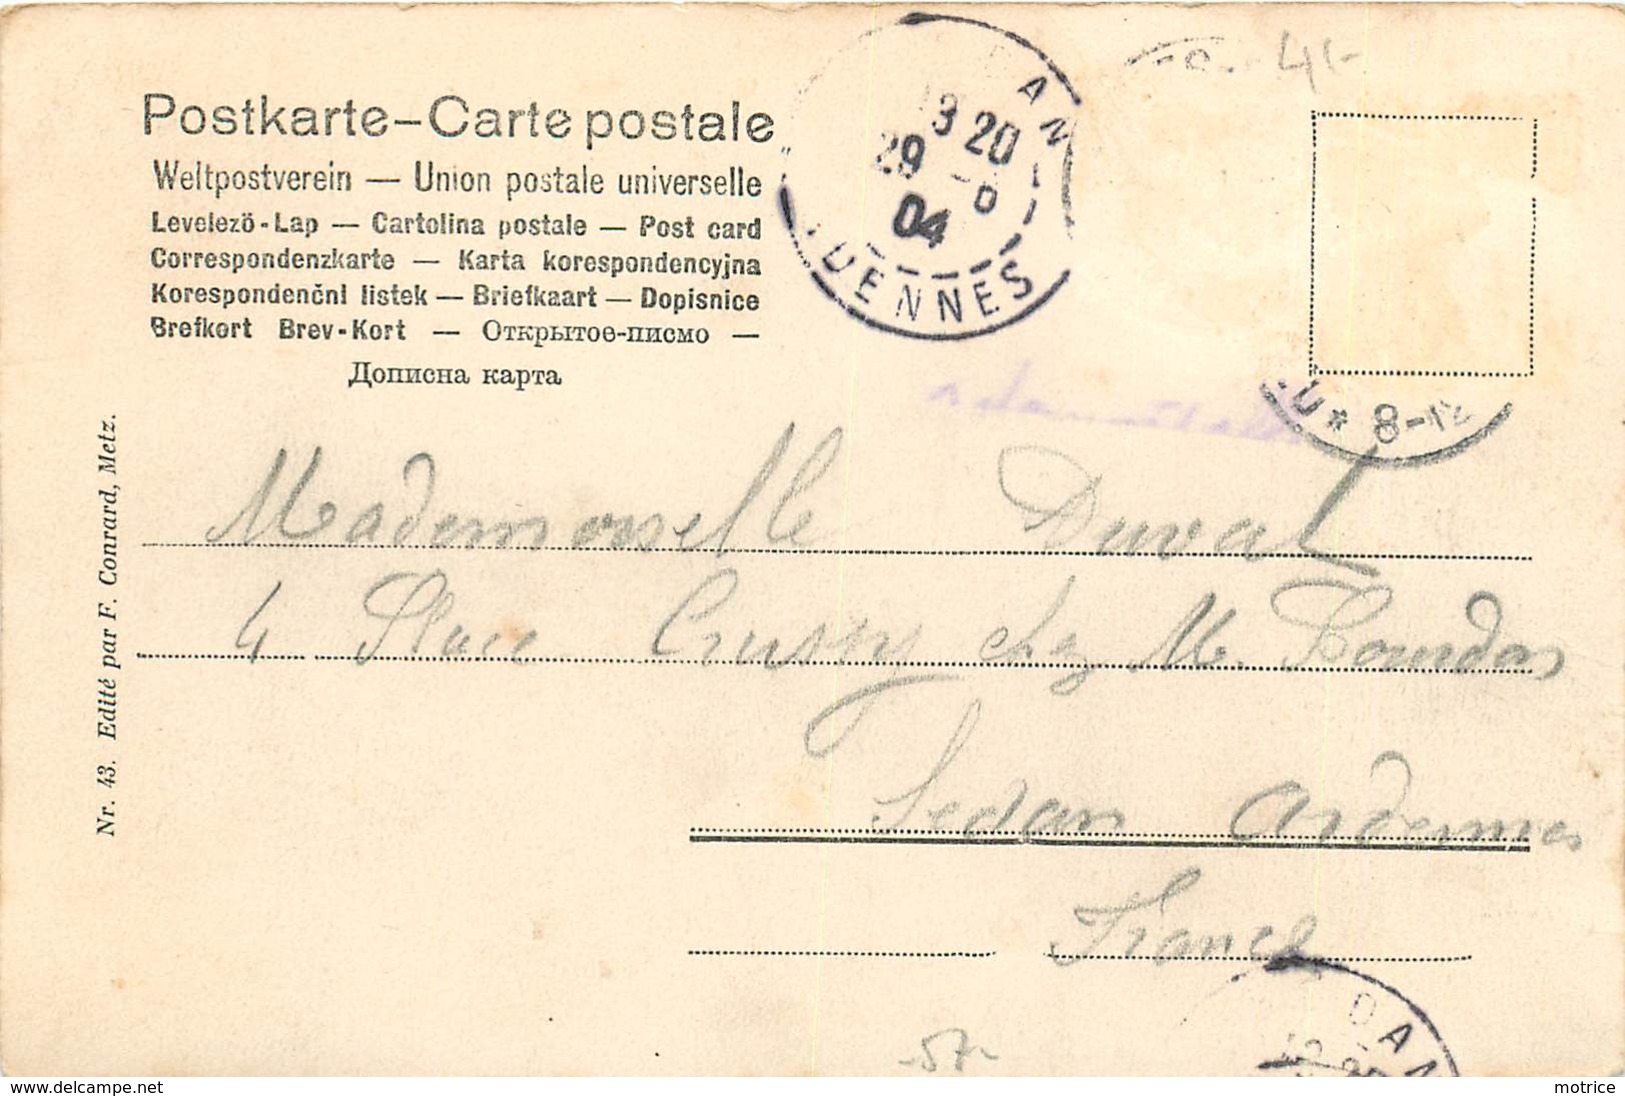 Postkarte-Carte postale
Weltpostverein — Union postale universelle
Levelezö-Lap — Cartolina postale — Post card
Correspondenzkarte — Karta korespondencyjna
Korespondenční lístek — Briefkaart — Dopisnice
Brefkort Brev-Kort — Открытое-письмо —
Дописна карта
DAN
20
29
04
DENNES
41-
* 8-12
Mademoiselle Duval
4 Place Crussy chez M. Bourdon
Sedan Ardennes
France
Nr. 43. Edité par F. Conrard, Metz.
DAN
-57-
www.delcampe.net
motrice